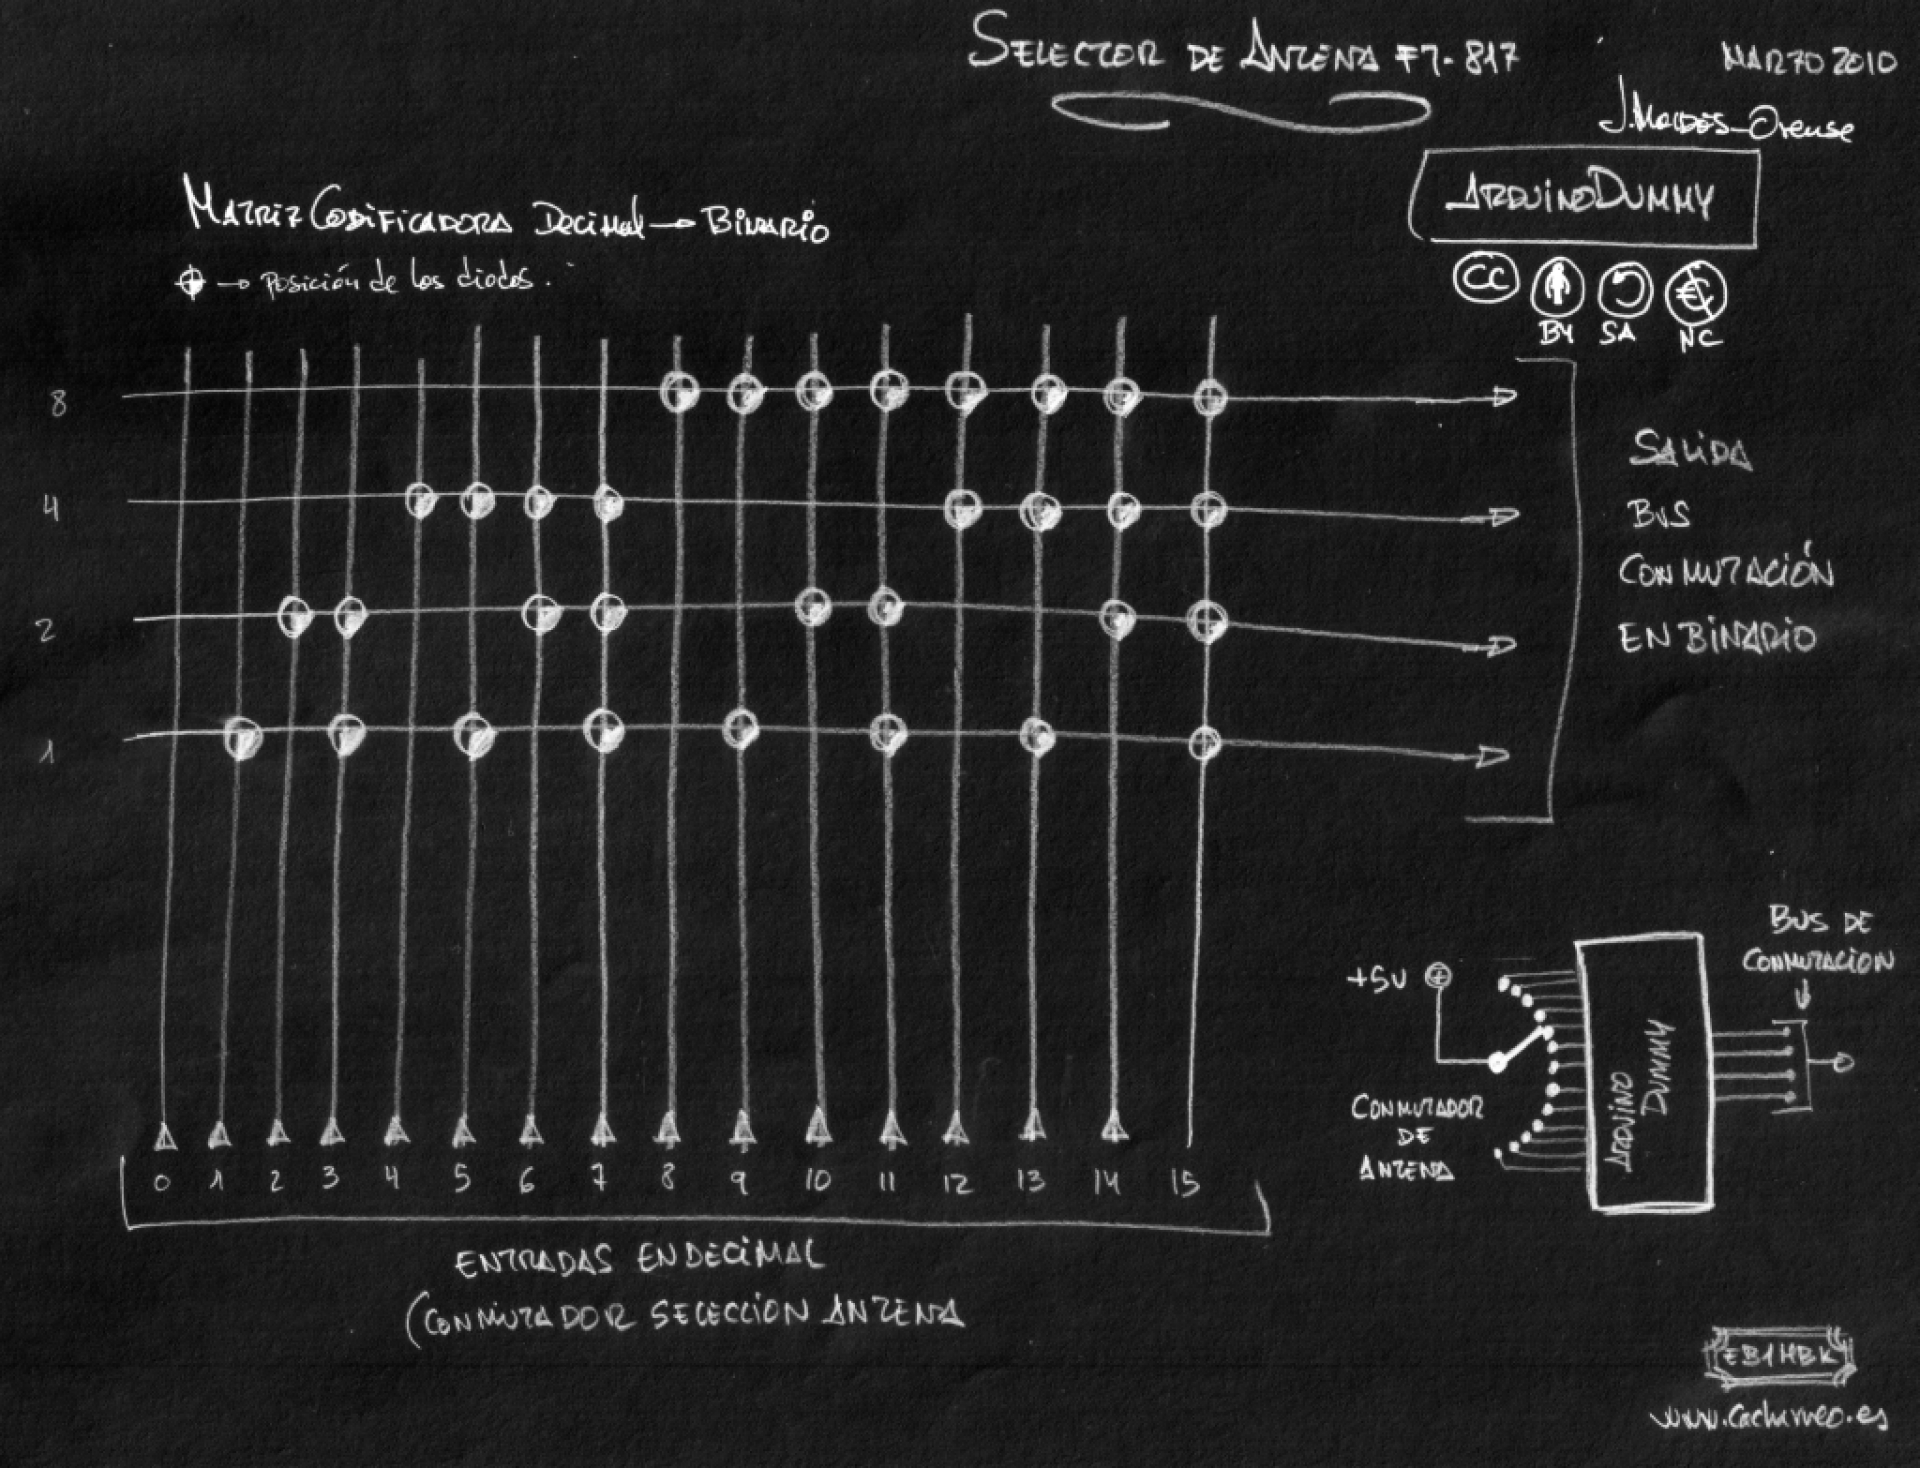 SELECTOR DE ANTENA FT-817
MARZO 2010
J. Moldes-Orense
ARDUINODUMMY
CC
BY SA NC
MATRIZ CODIFICADORA DECIMAL → BINARIO
→ Posición de los diodos.
8
4
2
1
SALIDA
BUS
CONMUTACIÓN
EN BINARIO
0 1 2 3 4 5 6 7 8 9 10 11 12 13 14 15
ENTRADAS EN DECIMAL
(CONMUTADOR SELECCION ANTENA
BUS DE
CONMUTACION
+5V
ARDUINO
DUMMY
CONMUTADOR
DE
ANTENA
EB1HBK